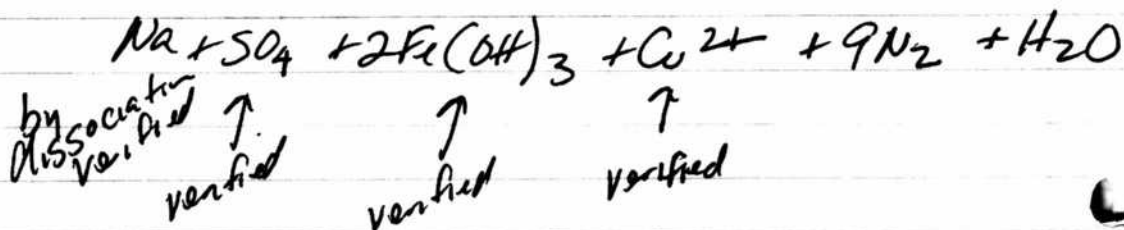 Na + SO4 + 2Fe(OH)3 + Cu 2+ + 9N2 + H2O
by dissociation verified
↑ verified
↑ verified
↑ verified